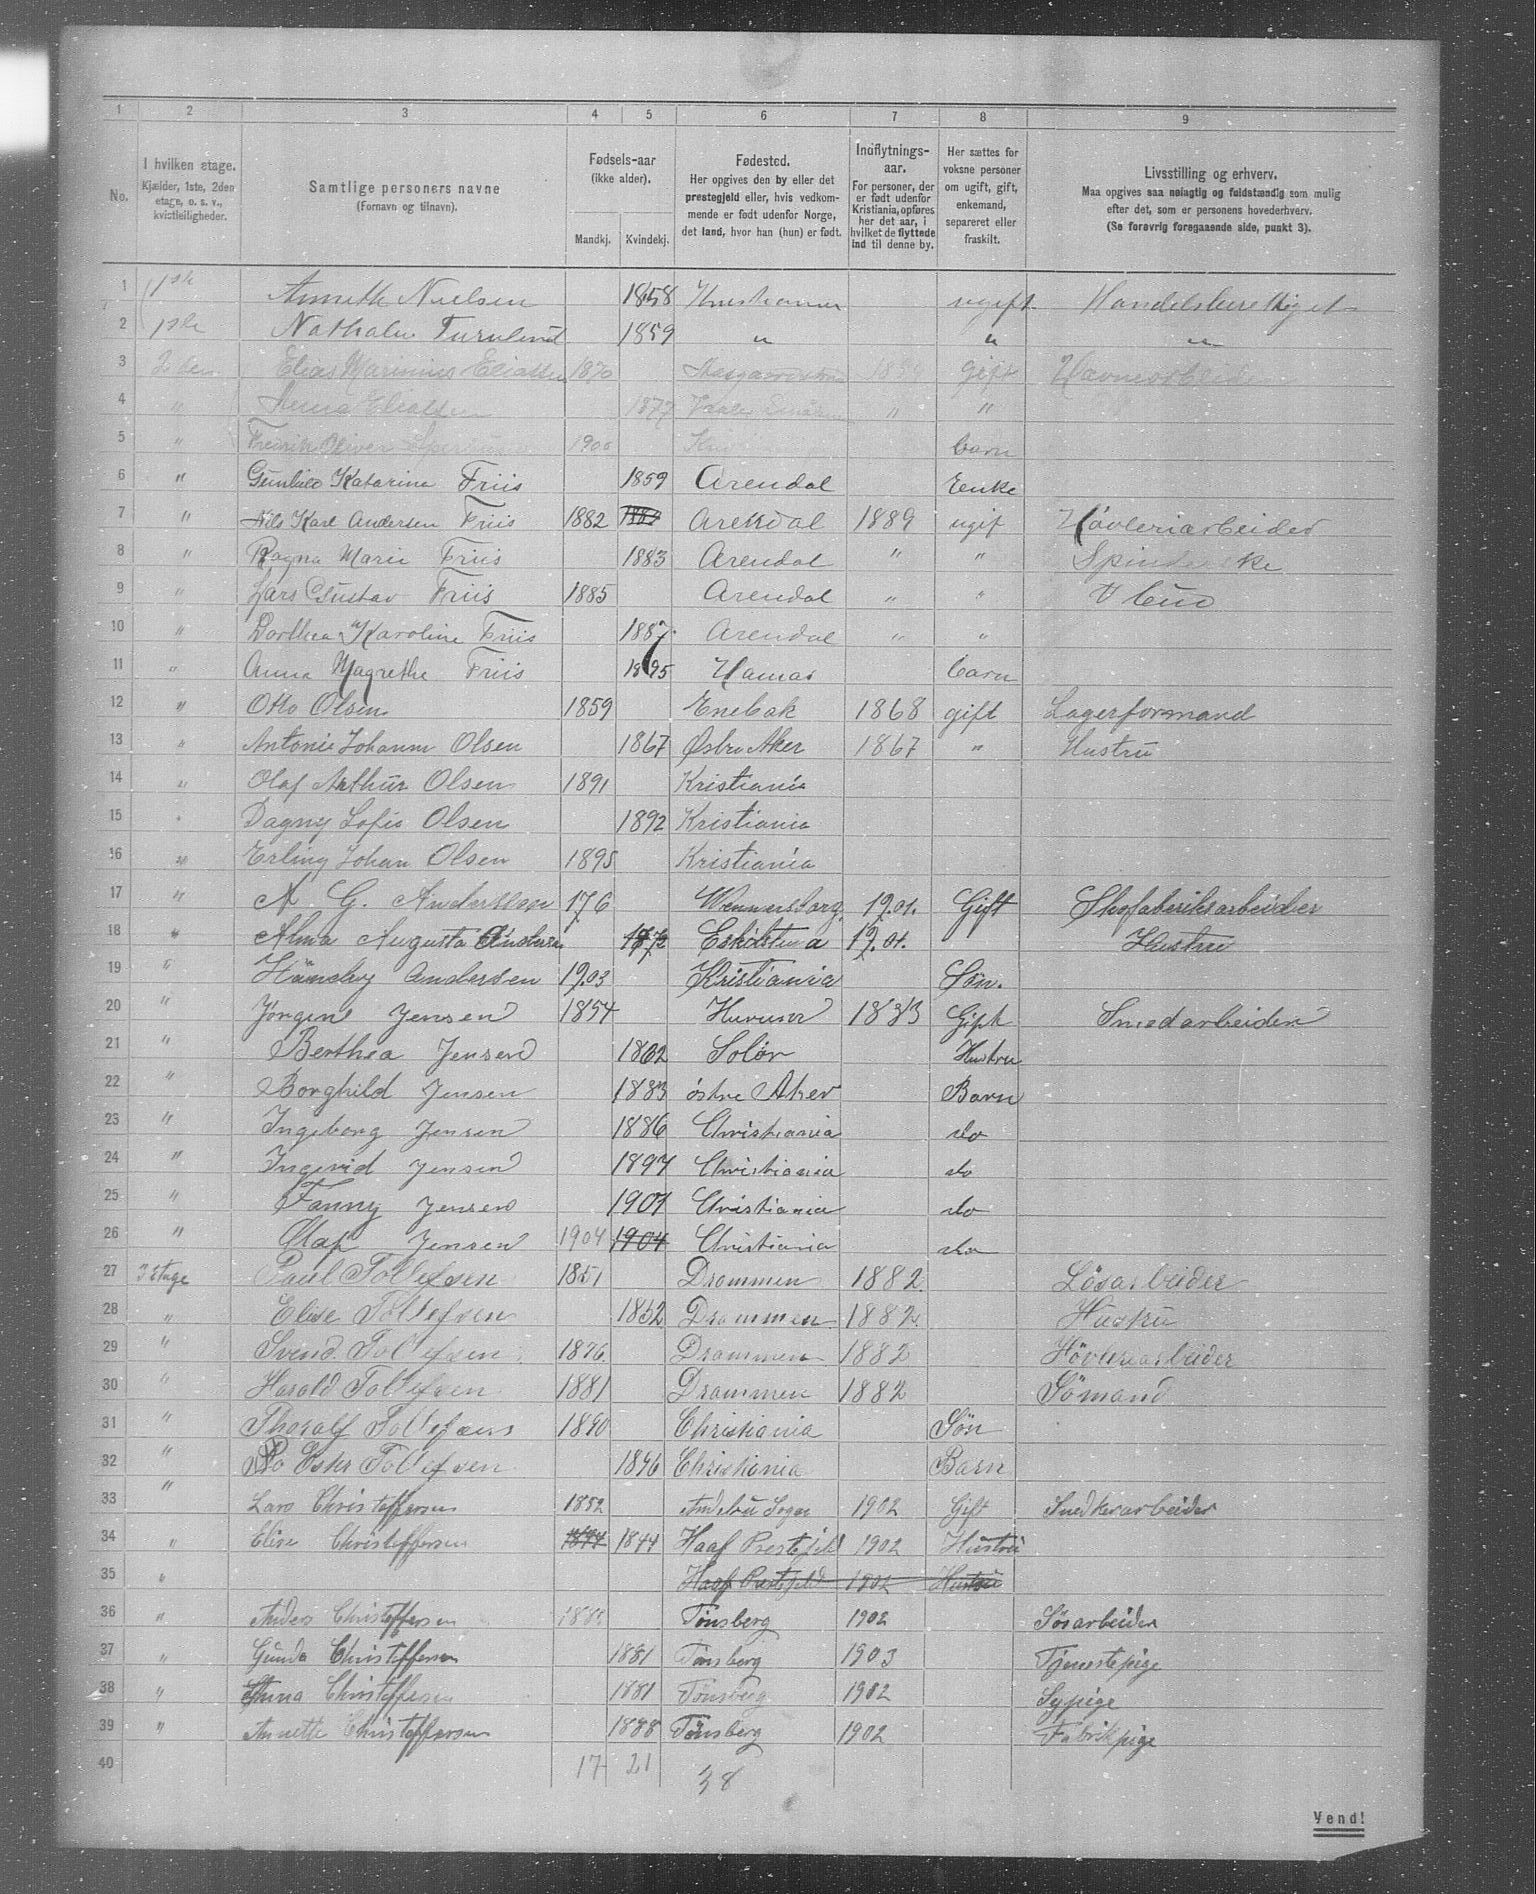 1 2 3 4 5 6 7 8 9
No. I hvilken etage. Kjælder, 1ste, 2den etage, o. s. v., kvistleiligheder. Samtlige personers navne (Fornavn og tilnavn). Fødsels-aar (ikke alder). Mandkj. Kvindekj. Fødested. Her opgives den by eller det prestegjeld eller, hvis vedkommende er født udenfor Norge, det land, hvor han (hun) er født. Indflytnings-aar. For personer, der er født udenfor Kristiania, opføres her det aar, i hvilket de flyttede ind til denne by. Her sættes for voksne personer om ugift, gift, enkemand, separeret eller fraskilt. Livsstilling og erhverv. Maa opgives saa nøiagtig og fuldstændig som mulig efter det, som er personens hovederhverv. (Se forøvrig foregaaende side, punkt 3).
1 1ste Annette Nielsen 1858 Kristiania ugift Handelsberettiget
2 1ste Nathalie 1859 " " "
3 2den Elias Marinius Eliassen 1870 gift Havnearbeider
4 " Anna Eliassen 1877 " "
5 " Fredrik Oliver 1900 barn
6 " Gunhild Katarina Friis 1859 Arendal Enke
7 " Nils Karl Andersen Friis 1882 Arendal 1889 ugift Høvleriarbeider
8 " Ragna Marie Friis 1883 Arendal " "
9 " Lars Gustav Friis 1885 Arendal " "
10 " Dorthea Karoline Friis 1887 Arendal " "
11 " Anna Magrethe Friis 1895 Hamar barn
12 " Otto Olsen 1859 Enebak 1868 gift Lagerformand
13 " Antonie Johanne Olsen 1867 Østre Aker 1867 " Hustru
14 " Olaf Arthur Olsen 1891 Kristiania
15 " Dagny Sofie Olsen 1892 Kristiania
16 " Erling Johan Olsen 1895 Kristiania
17 " A. G. Andersson 176 Wennersborg 19.01. Gift Skofabriksarbeider
18 " Alma Augusta Andersen Eskilstuna 19.01. Hustru
19 " Andersen 19.03 Kristiania Søn.
20 " Jørgen Jensen 1854 Hurum 1883 Gift Smedarbeider
21 " Berthea Jensen 1862 Solør Hustru
22 " Borghild Jensen 1883 östre Aker Barn
23 " Ingeborg Jensen 1886 Christiania do
24 " Ingerid Jensen 1897 Christiania do
25 " Fanny Jensen 1901 Christiania do
26 " Olaf Jensen 1904 1904 Christiania do
27 3 Etage Paul Tollefsen 1851 Drammen 1882 Lösarbeider
28 " Elise Tollefsen 1852 Drammen 1882 Hustru
29 " Svend Tollefsen 1876 Drammen 1882 Høvleriarbeider
30 " Harald Tollefsen 1881 Drammen 1882 Sömand
31 " Thoralf Tollefsen 1890 Christiania Sön
32 " Tollefsen 1896 Christiania Barn
33 " Lars Christoffersen 1852 1902 Gift Snedkerarbeider
34 " Elise Christoffersen 1844 1844 Haaf Prestejeld 1902 Hustru
35 " Haaf Prestejeld 1902 Hustru
36 " Anders Christoffersen Tönsberg 1902 Sösarbeider
37 " Gunda Christoffersen 1881 Tönsberg 1903 Tjenestepige
38 " Anna Christoffersen 1881 Tönsberg 1902 Sypige
39 " Annette Christoffersen 1888 Tönsberg 1902 Fabrikpige
40 17 21 38
Vend!